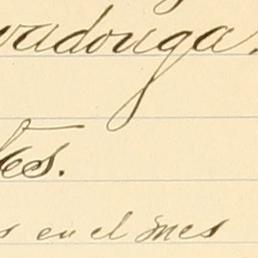 vadonga.
es.
s en el mes